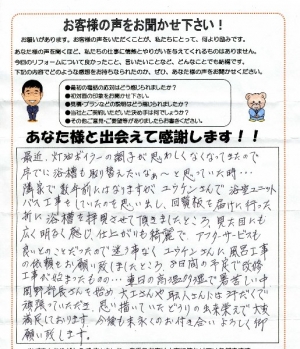 お客様の声をお聞かせ下さい!
お願いがあります。お客様の声をいただくことが、私たちにとって、何より励みです。
あなた様の声を聞くほど、私たちの仕事に情熱とやりがいを与えてくれるものはありません。
今回のリフォームについて良かったこと、言いたいことなど、どんなことでも結構です。
下記の内容でどのような感想をお持ちになられたのか、ぜひ、あなた様の声をお聞かせください。
●最初の電話の応対はどう感じられましたか?
●初対面の印象をお聞かせ下さい。
●見積・プランなどの説明はどう感じられましたか?
●当社とご契約いただいた決め手は何でしょうか?
●その他ご意見・ご要望等がありましたらお書き下さい。
あなた様と出会えて感謝します!!
最近、灯油ボイラーの調子が思わしくなくなってきたので
序でに浴槽も取り替えたいなぁ~と思っていた時…
満栄で数年前にはなりますが、ユウケンさんで浴室ユニット
バス工事をしていたのを思い出し、回覧板を届けに行った
折に浴槽を拝見させて頂きましたところ、見た目にも
広く明るく感じ、仕上がりも綺麗で、アフターサービスも
良いとのことだったので迷う事なく、ユウケンさんに風呂工事
の依頼をお願い致しましたところ、3日間の予定で改修
工事が始まったものの…連日の高温多湿で蒸し苦しい中
岡野部長さんを始め、大工さんや職人さんには汗だくで
頑張っていただき、思い描いていたどうりの出来栄えで大変
満足しております。今後も末永くのお付き合いよろしく御
願い致します。